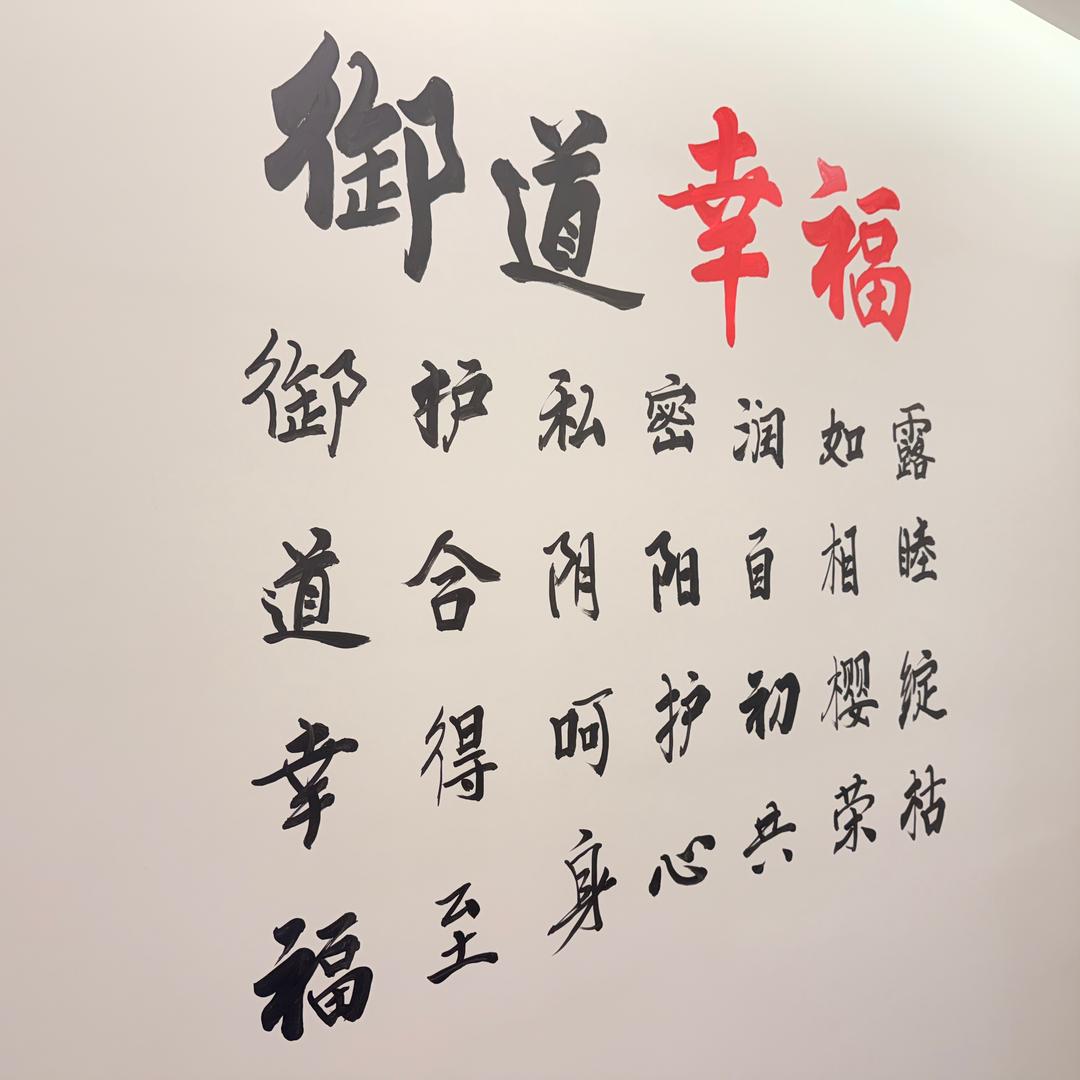 御道幸福
御护私密润如露
道合阴阳自相睦
幸得呵护初樱绽
福至身心共荣枯